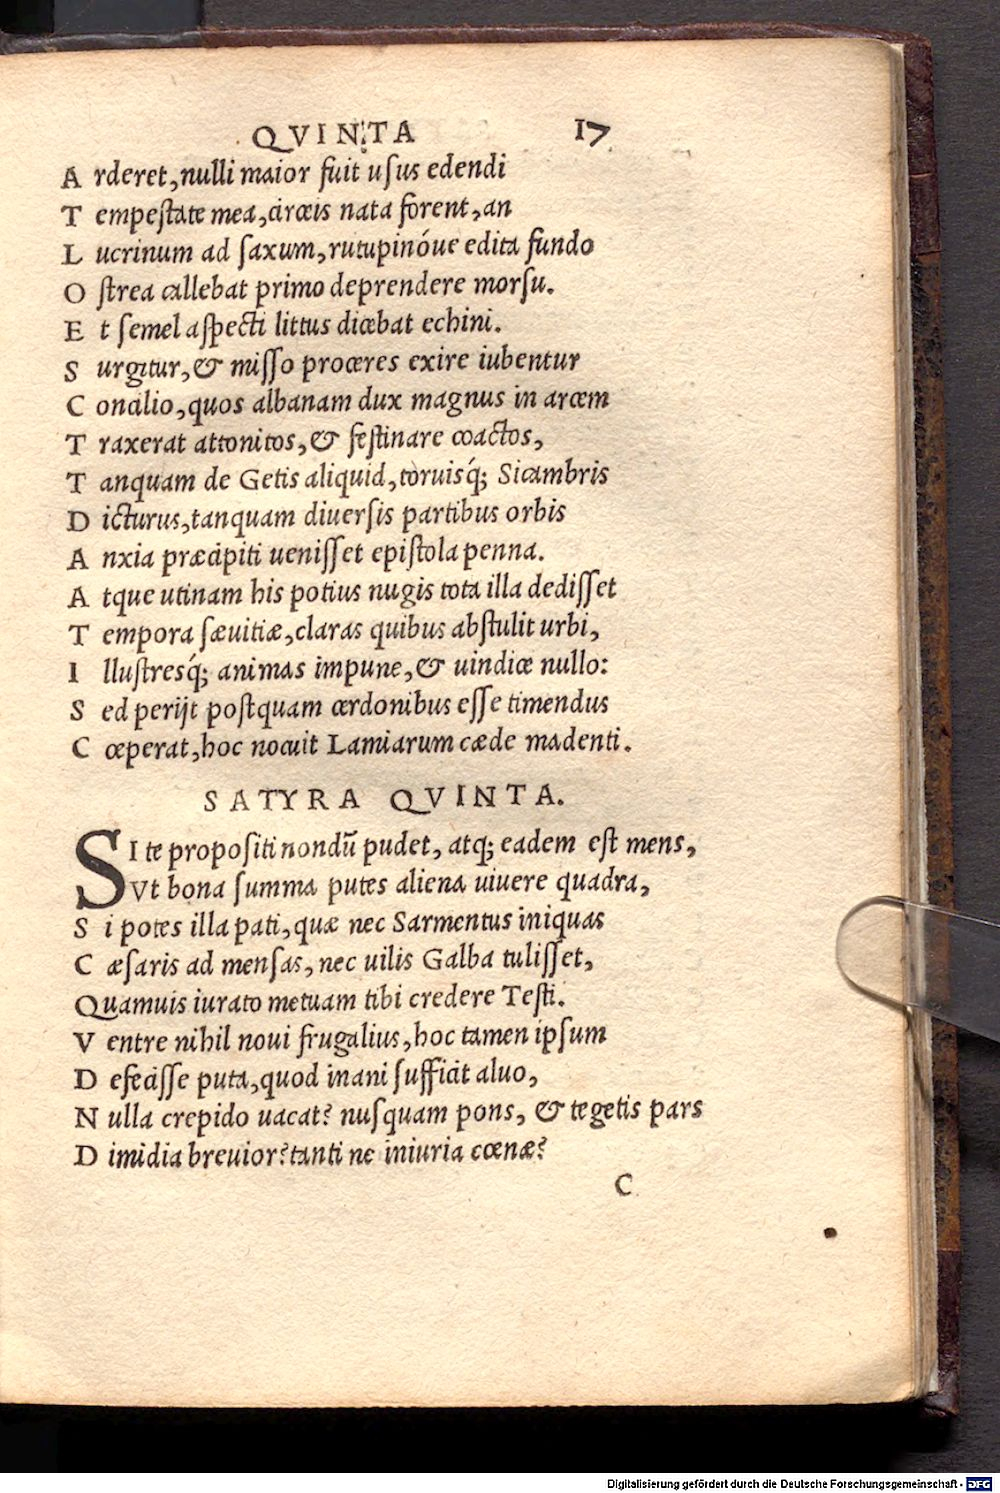 QVINTA 17
A rderet, nulli maior fuit usus edendi
T empestate mea, circeis nata forent, an
L ucrinum ad saxum, rutupinóue edita fundo
O strea callebat primo deprendere morsu.
E t semel aspecti littus dicebat echini.
S urgitur, & misso proceres exire iubentur
C oncilio, quos albanam dux magnus in arcem
T raxerat attonitos, & festinare coactos,
T anquam de Getis aliquid, toruisq́; Sicambris
D icturus, tanquam diuersis partibus orbis
A nxia præcipiti uenisset epistola penna.
A tque utinam his potius nugis tota illa dedisset
T empora sæuitiæ, claras quibus abstulit urbi,
I llustresq́; animas impune, & uindice nullo:
S ed perijt postquam cerdonibus esse timendus
C œperat, hoc nocuit Lamiarum cæde madenti.
SATYRA QVINTA.
SI te propositi nondū pudet, atq; eadem est mens,
Vt bona summa putes aliena uiuere quadra,
S i potes illa pati, quæ nec Sarmentus iniquas
C æsaris ad mensas, nec uilis Galba tulisset,
Quamuis iurato metuam tibi credere Testi.
V entre nihil noui frugalius, hoc tamen ipsum
D efecisse puta, quod inani sufficit aluo,
N ulla crepido uacat? nusquam pons, & tegetis pars
D imidia breuior? tanti ne iniuria cœnæ?
C
Digitalisierung gefördert durch die Deutsche Forschungsgemeinschaft - DFG